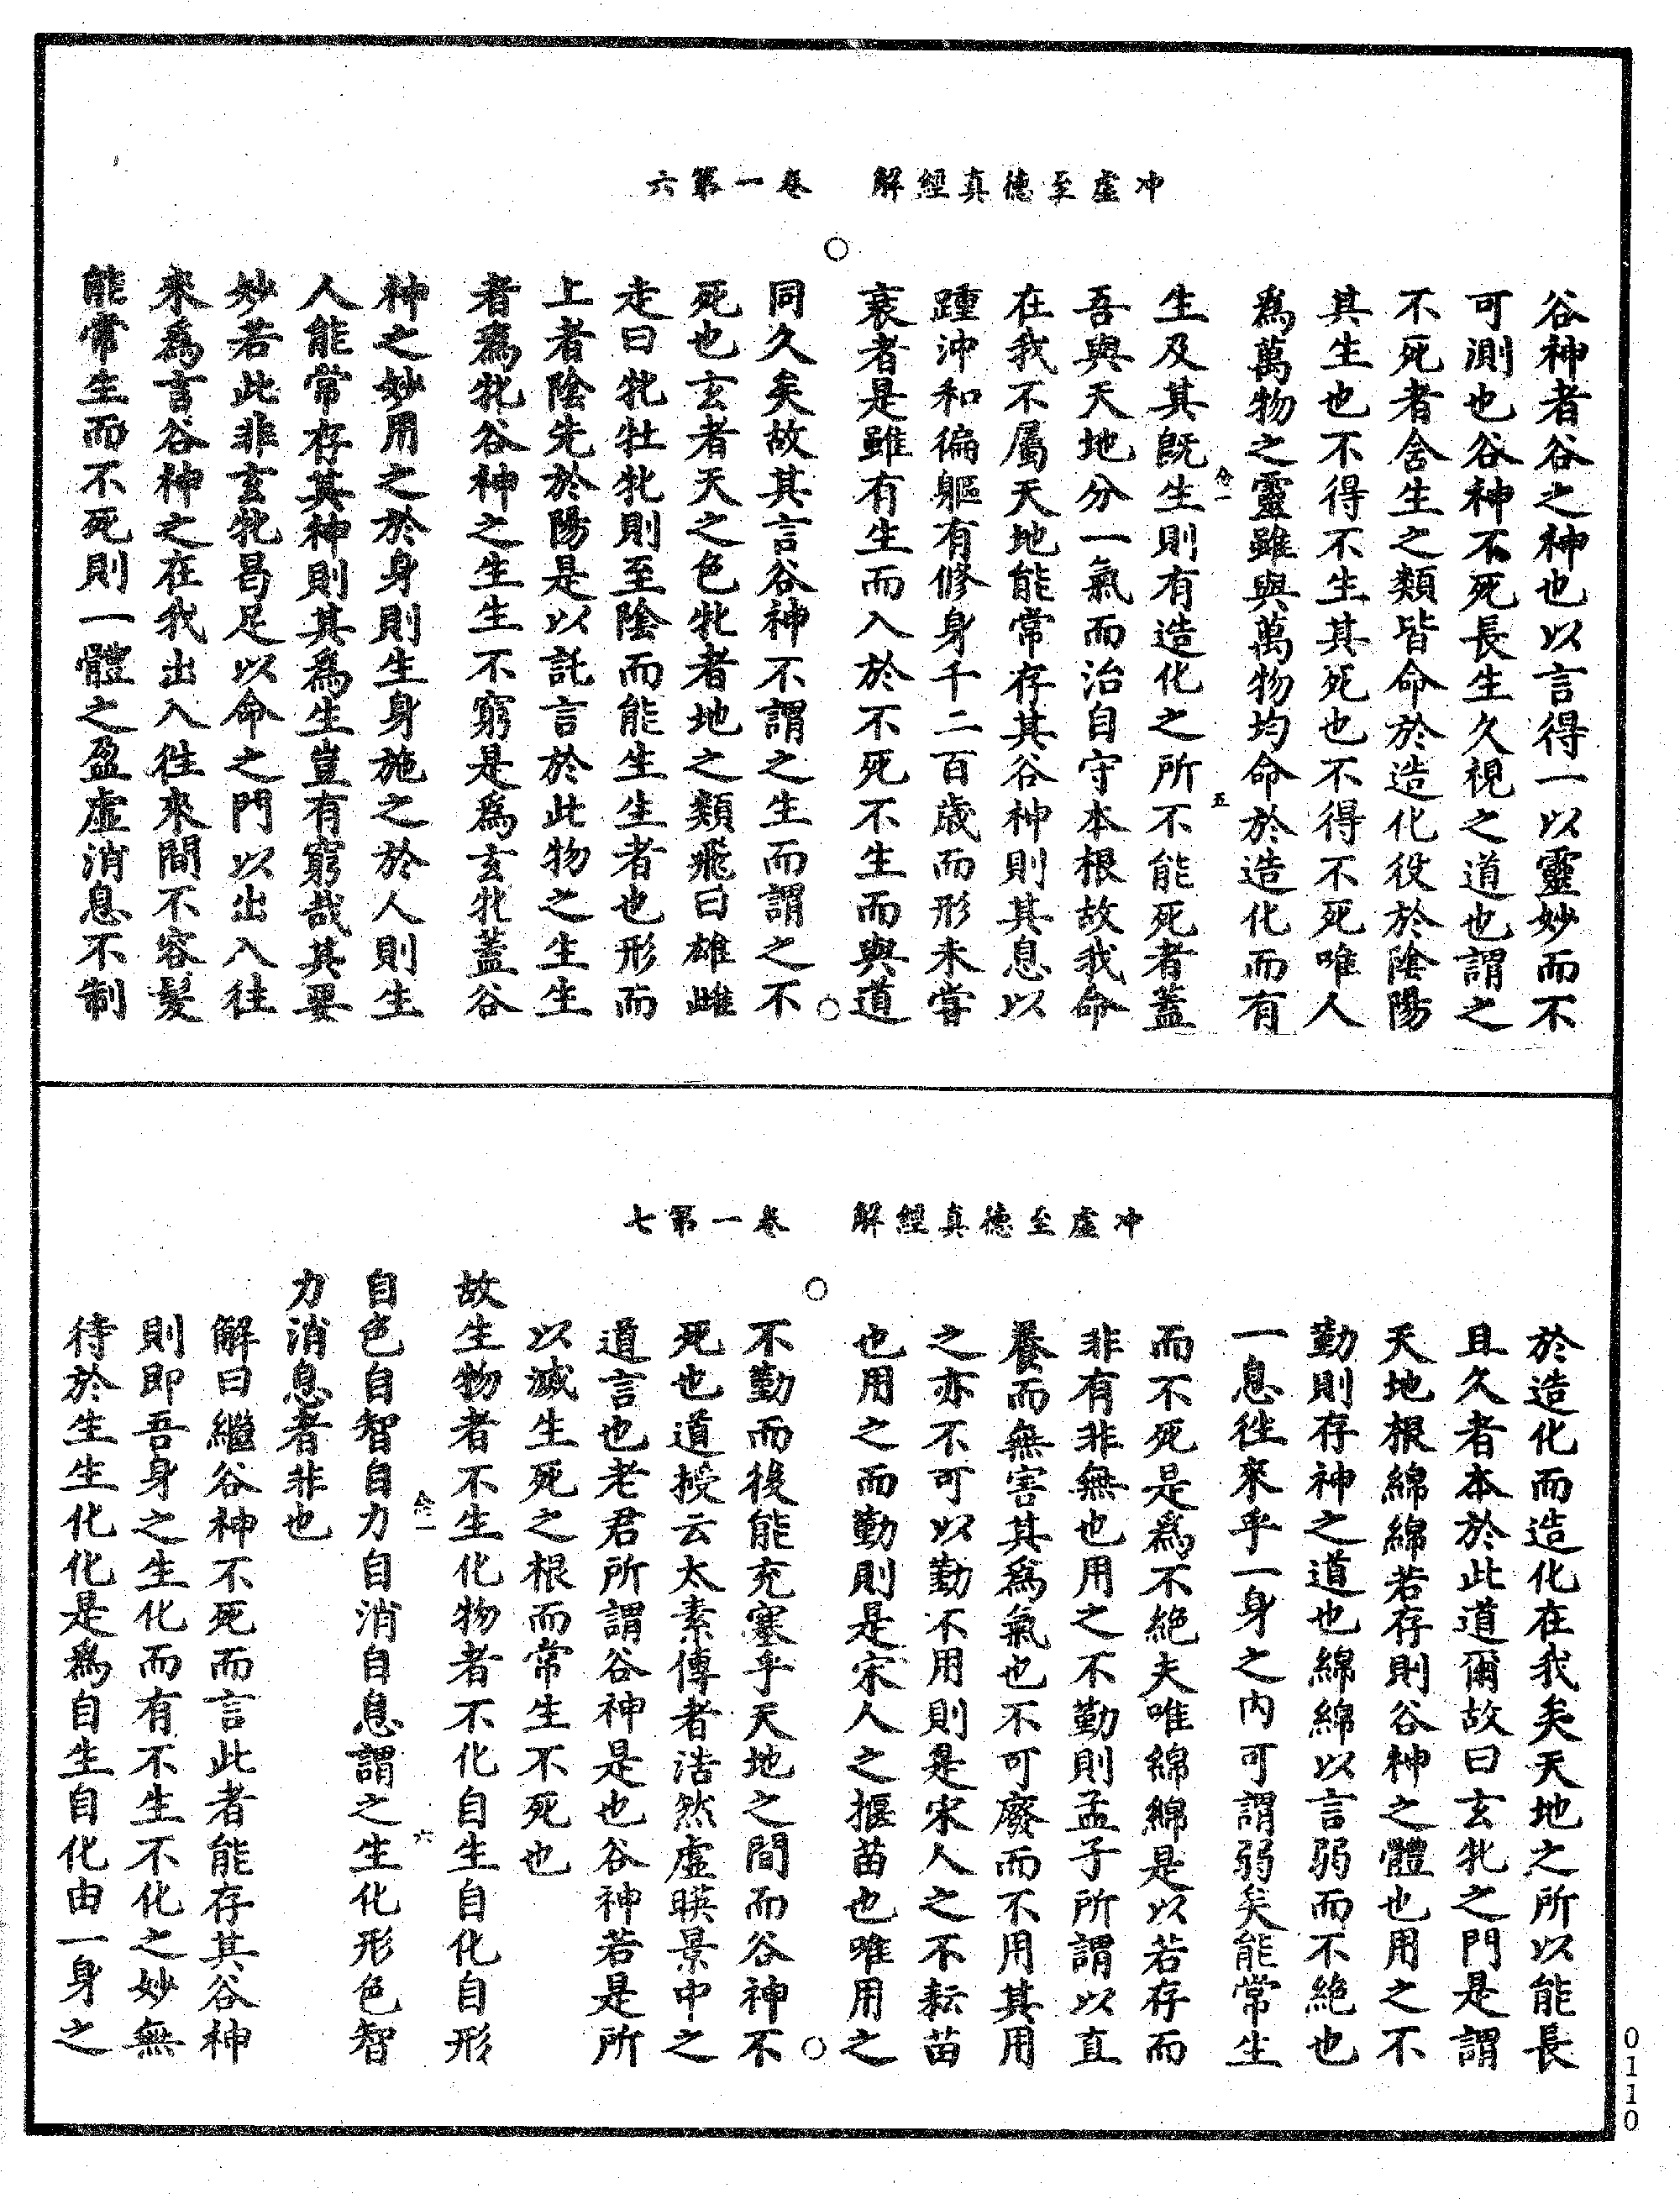 冲虛至德真經解　卷一第六
谷神者谷之神也以言得一以靈妙而不
可測也谷神不死長生久視之道也謂之
不死者含生之類皆命於造化役於陰陽
其生也不得不生其死也不得不死唯人
爲萬物之靈雖與萬物均命於造化而有
生及其旣生則有造化之所不能死者蓋
吾與天地分一氣而治自守本根故我命
在我不屬天地能常存其谷神則其息以
踵沖和偏軀有修身千二百歲而形未嘗
衰者是雖有生而入於不死不生而與道
同久矣故其言谷神不謂之生而謂之不
死也玄者天之色牝者地之類飛曰雄雌
走曰牝牡牝則至陰而能生生者也形而
上者陰先於陽是以託言於此物之生生
者爲牝谷神之生生不窮是爲玄牝蓋谷
神之妙用之於身則生身施之於人則生
人能常存其神則其爲生豈有窮哉其要
妙若此非玄牝曷足以命之門以出入往
來爲言谷神之在我出入往來間不容髮
能常生而不死則一體之盈虛消息不制
冲虛至德真經解　卷一第七
於造化而造化在我矣天地之所以能長
且久者本於此道爾故曰玄牝之門是謂
天地根綿綿若存則谷神之體也用之不
勤則存神之道也綿綿以言弱而不絕也
一息往來乎一身之內可謂弱矣能常生
而不死是爲不絕夫唯綿綿是以若存而
非有非無也用之不勤則孟子所謂以直
養而無害其爲氣也不可廢而不用其用
之亦不可以勤不用則是宋人之不耘苗
也用之而勤則是宋人之揠苗也唯用之
不勤而後能充塞乎天地之間而谷神不
死也道授云太素傳者浩然虛暎景中之
道言也老君所謂谷神是也谷神若是所
以滅生死之根而常生不死也
故生物者不生化物者不化自生自化自形
自色自智自力自消自息謂之生化形色智
力消息者非也
解曰繼谷神不死而言此者能存其谷神
則即吾身之生化而有不生不化之妙無
待於生生化化是爲自生自化由一身之
0110